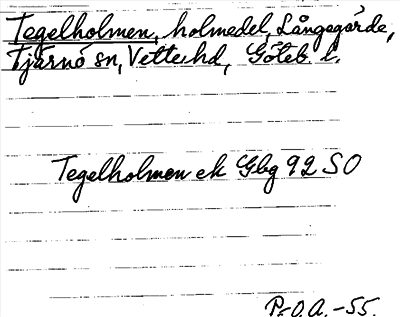 Tegelholmen, holmedel, Långegärde,
Tjärnö sn, Vette hd, Göteb. l.
Tegelholmen ek Gbg 92 SO
P.O.A. -55.